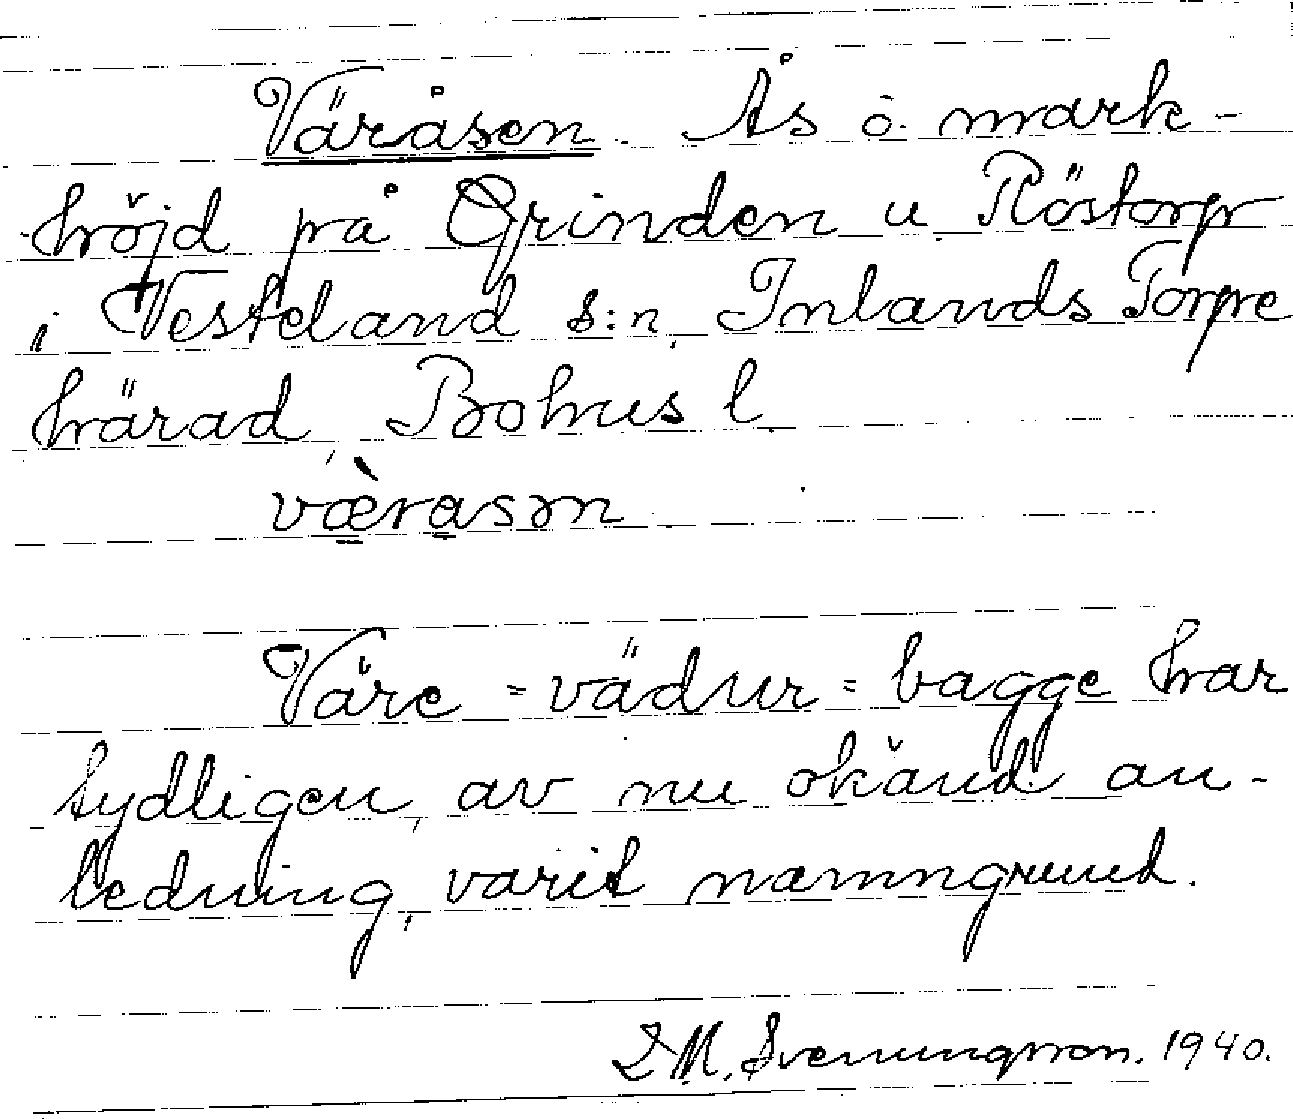 Väråsen. Ås o. mark-
höjd på Grinden u. Röstorp
i Vesteland s:n, Inlands Torpe
härad, Bohus l.
væ̀rasən
Väre = vädur = bagge har
tydligen, av nu okänd an-
ledning, varit namngrund.
Svenungsson. 1940.